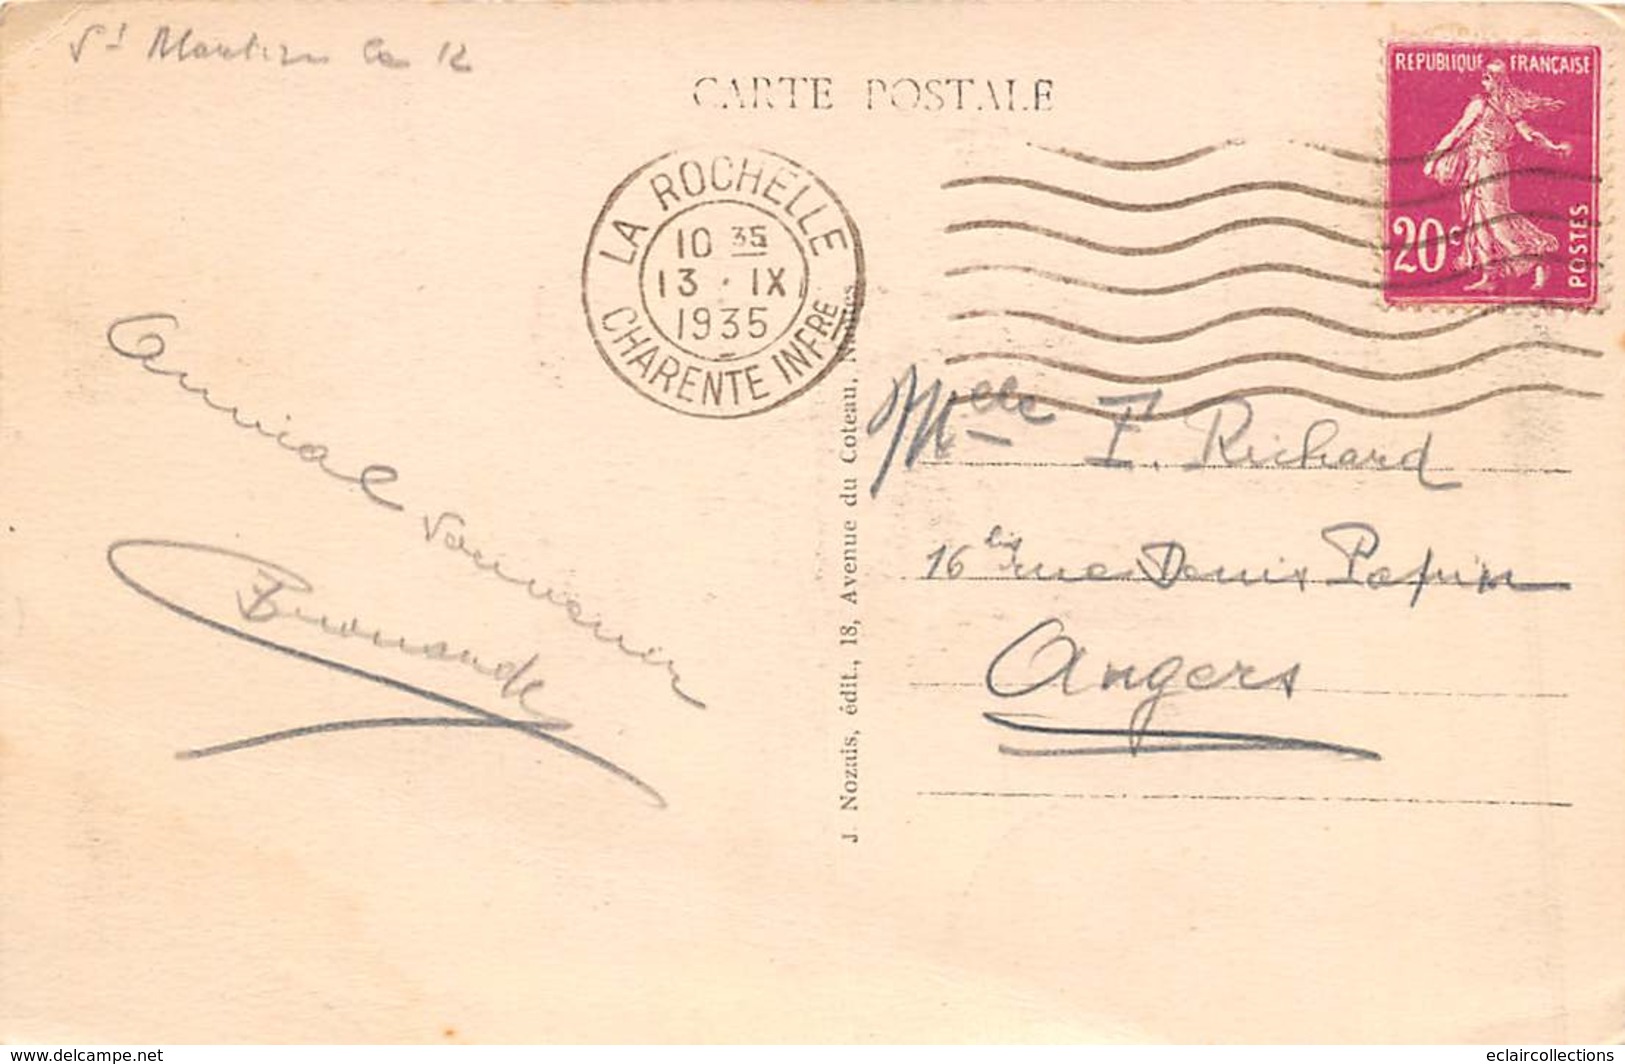 St Martin le 12
CARTE POSTALE
REPUBLIQUE FRANÇAISE
20c
POSTES
LA ROCHELLE
10 35
13 · IX
1935
CHARENTE INFRE
Amical
Souvenir
J. Nozais, édit., 18, Avenue du Coteau, Nantes
Melle F. Richard
16 bis rue Denis Papin
Angers
www.delcampe.net
eclaircollections